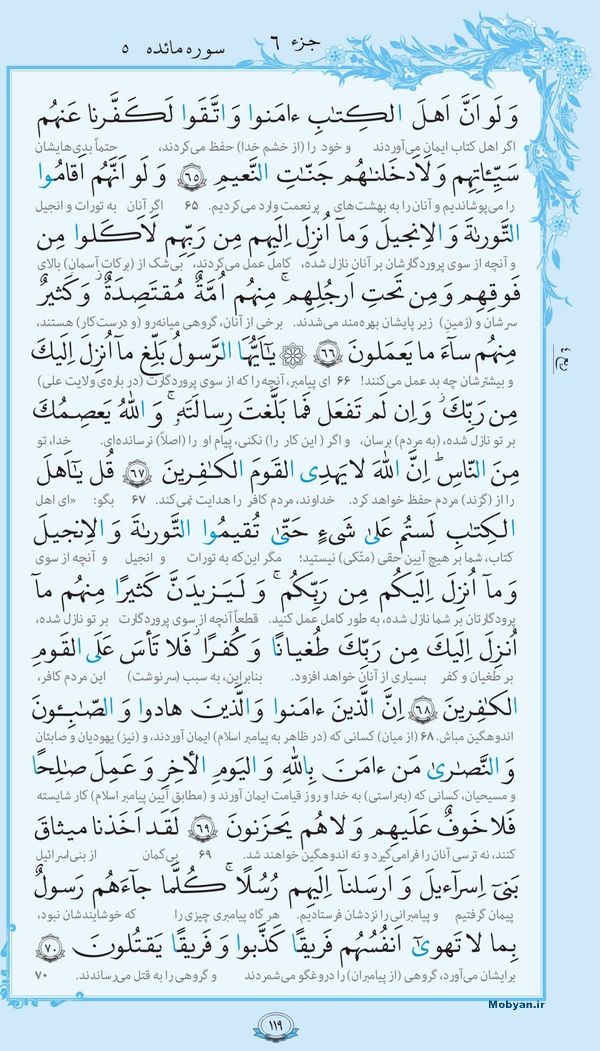 جزء ۶ سوره مائده ۵
وَ لَو اَنَّ اَهلَ الكِتٰبِ ءامَنوا وَ اتَّقَوا لَكَفَّرنا عَنهُم
اگر اهل کتاب ایمان می‌آوردند و خود را (از خشم خدا) حفظ می‌کردند، حتماً بدی‌هایشان
سَيِّئاتِهِم وَ لَاَدخَلنٰهُم جَنّٰتِ النَّعيمِ ۶۵ وَ لَو اَنَّهُم اَقامُوا
را می‌پوشاندیم و آنان را به بهشت‌های پرنعمت وارد می‌کردیم. ۶۵ اگر آنان به تورات و انجیل
التَّورىٰةَ وَ الاِنجيلَ وَ مآ اُنزِلَ اِلَيهِم مِن رَبِّهِم لَاَكَلوا مِن
و آنچه از سوی پروردگارشان بر آنان نازل شده، کامل عمل می‌کردند، بی‌شک از (برکاتِ آسمان) بالای
فَوقِهِم وَ مِن تَحتِ اَرجُلِهِم ۚ مِنهُم اُمَّةٌ مُقتَصِدَةٌ ۖ وَ كَثيرٌ
سرشان و (زمینِ) زیر پایشان بهره‌مند می‌شدند. برخی از آنان، گروهی میانه‌رو (و درست‌کار) هستند،
مِنهُم سآءَ ما يَعمَلونَ ۶۶ ۞ يٰٓاَيُّهَا الرَّسولُ بَلِّغ مآ اُنزِلَ اِلَيكَ
و بیشترشان چه بد عمل می‌کنند! ۶۶ ای پیامبر، آنچه را که از سوی پروردگارت (درباره‌ی ولایت علی)
مِن رَبِّكَ ۖ وَ اِن لَم تَفعَل فَما بَلَّغتَ رِسالَتَهٗ ۚ وَ اللّٰهُ يَعصِمُكَ
بر تو نازل شده، (به مردم) برسان، و اگر (این کار را) نکنی، پیام او را (اصلاً) نرسانده‌ای. خدا، تو
مِنَ النّاسِ ۗ اِنَّ اللّٰهَ لا يَهدِى القَومَ الكٰفِرينَ ۶۷ قُل يٰٓاَهلَ
را از (گزند) مردم حفظ خواهد کرد. خداوند، مردم کافر را هدایت نمی‌کند. ۶۷ بگو: «ای اهل
الكِتٰبِ لَستُم عَلىٰ شَىءٍ حَتّىٰ تُقيمُوا التَّورىٰةَ وَ الاِنجيلَ
کتاب، شما بر هیچ آیین حقی (متّکی) نیستید؛ مگر این‌که به تورات و انجیل و آنچه از سوی
وَ مآ اُنزِلَ اِلَيكُم مِن رَبِّكُم ۗ وَ لَيَزيدَنَّ كَثيرًا مِنهُم مآ
پرودگارتان بر شما نازل شده، به طور کامل عمل کنید. قطعاً آنچه از سوی پروردگارت بر تو نازل شده،
اُنزِلَ اِلَيكَ مِن رَبِّكَ طُغيانًا وَ كُفرًا ۖ فَلا تَأسَ عَلَى القَومِ
بر طغیان و کفر بسیاری از آنان خواهد افزود. بنابراین، به سبب (سرنوشت) این مردم کافر،
الكٰفِرينَ ۶۸ اِنَّ الَّذينَ ءامَنوا وَ الَّذينَ هادوا وَ الصّٰبِـئونَ
اندوهگین مباش. ۶۸ (از میان) کسانی که (در ظاهر به پیامبر اسلام) ایمان آوردند، و (نیز) یهودیان و صابئان
وَ النَّصٰرىٰ مَن ءامَنَ بِاللّٰهِ وَ اليَومِ الأخِرِ وَ عَمِلَ صٰلِحًا
و مسیحیان، کسانی که (به‌راستی) به خدا و روز قیامت ایمان آورند و (مطابق آیین پیامبر اسلام) کار شایسته
فَلا خَوفٌ عَلَيهِم وَ لا هُم يَحزَنونَ ۶۹ لَقَد اَخَذنا ميثاقَ
کنند، نه ترسی آنان را فرا می‌گیرد و نه اندوهگین خواهند شد. ۶۹ بی‌گمان از بنی‌اسرائیل
بَنىٓ اِسرآءيلَ وَ اَرسَلنآ اِلَيهِم رُسُلًا ۖ كُلَّما جآءَهُم رَسولٌ
پیمان گرفتیم و پیامبرانی را نزدشان فرستادیم. هر گاه پیامبری چیزی را که خوشایندشان نبود،
بِما لا تَهوىٰٓ اَنفُسُهُم فَريقًا كَذَّبوا وَ فَريقًا يَقتُلونَ ۷۰
برایشان می‌آورد، گروهی (از پیامبران) را دروغگو می‌شمردند و گروهی را به قتل می‌رساندند. ۷۰
Mobyan.ir
۱۱۹